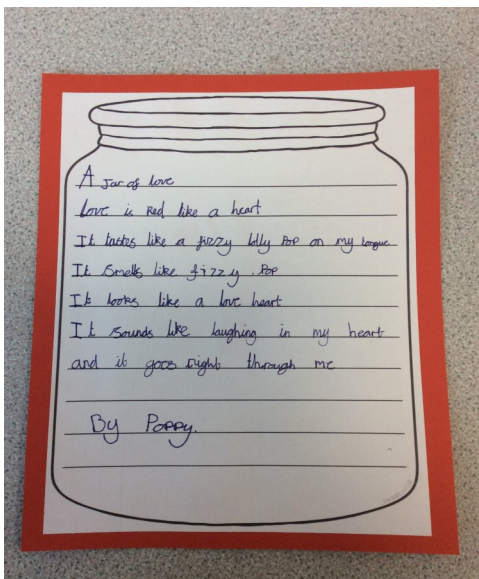 A Jar of love
Love is Red like a heart
It tastes like a fizzy lolly Pop on my tongue
It smells like fizzy Pop
It looks like a love heart
It sounds like laughing in my heart
and it goes right through me
By Poppy.